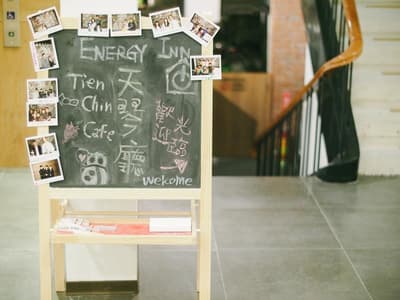 ENERGY INN
Tien
Chin
Cafe
天 廳
歡迎
光臨
welcome